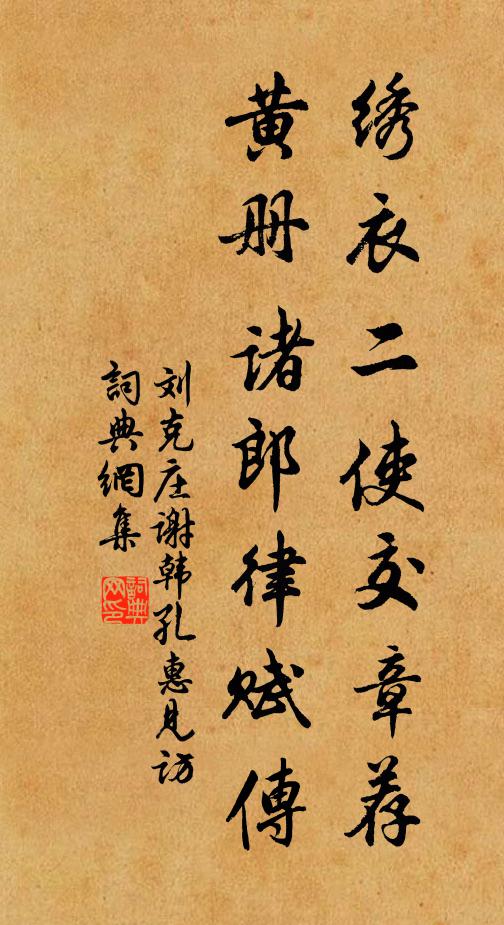 绣衣二使交章荐
黄册诸郎律赋傳
刘克庄谢韩孔惠见访
詞典網集
詞典網印